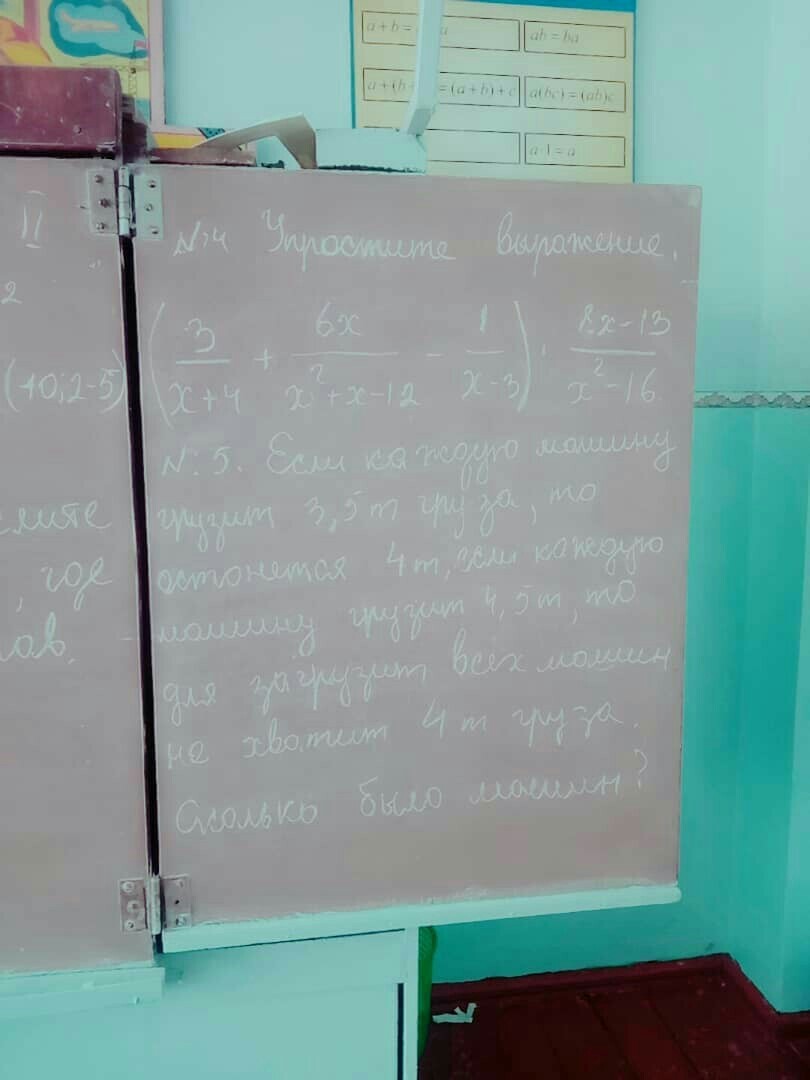 a + b =
ab = ba
= (a + b) + c
a(bc) = (ab)c
a · 1 = a
II
2
(10; 2-5)
где
N:4 Упростите выражение.
(3/(x+4) + 6x/(x²+x-12) - 1/(x-3)) · (8x-13)/(x²-16)
N: 5. Если каждую машину
грузит 3,5т груза, то
останется 4т, если каждую
машину грузит 4,5т, то
для загрузит всех машин
не хватит 4т груза.
Сколько было машин?